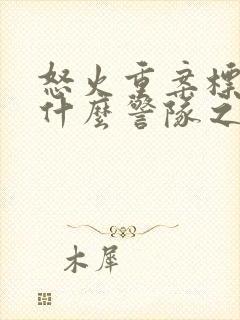 怒火重案標
什麼警隊之
木犀